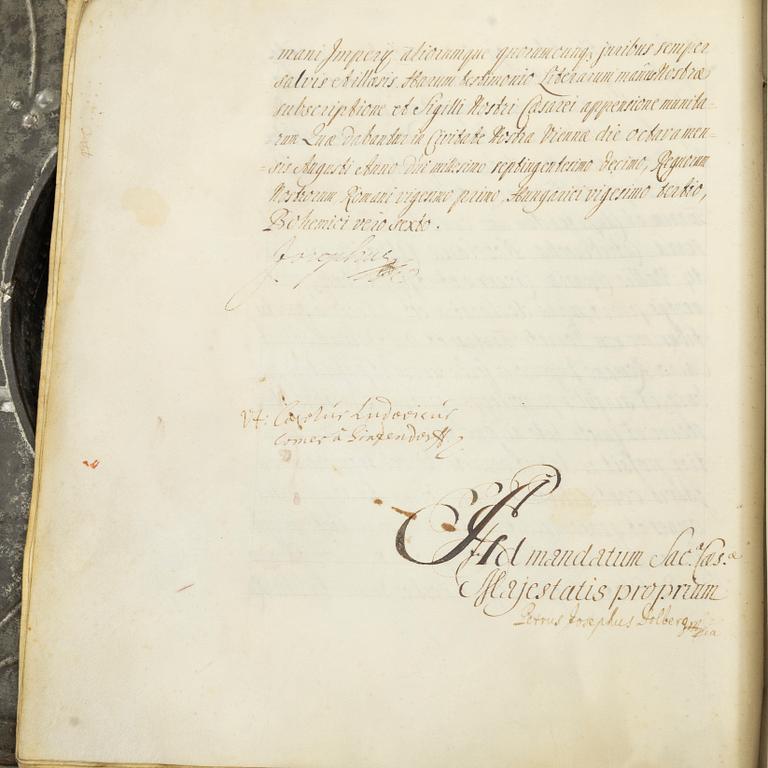 mani Imperij, aliorumque quorumcunq; juribus semper
salvis et illæsis. Harum testimonio Literarum manûs Nostræ
subscriptione et Sigilli Nostri Cæsarei appensione munita=
rum Quæ dabantur in Civitate Nostra Viennæ die octava men=
=sis Augusti Anno Dñi millesimo septingentesimo Decimo, Regnorum
Nostrorum Romani vigesimo primo, Hungarici vigesimo tertio,
Bohemici vero sexto.
Josephus
Vt: Carolus Ludovicus
Comes à Sinzendorff
Ad mandatum Sac.ᵃ Cæs.ᵃ
Majestatis proprium
Petrus Josephus Dolberg